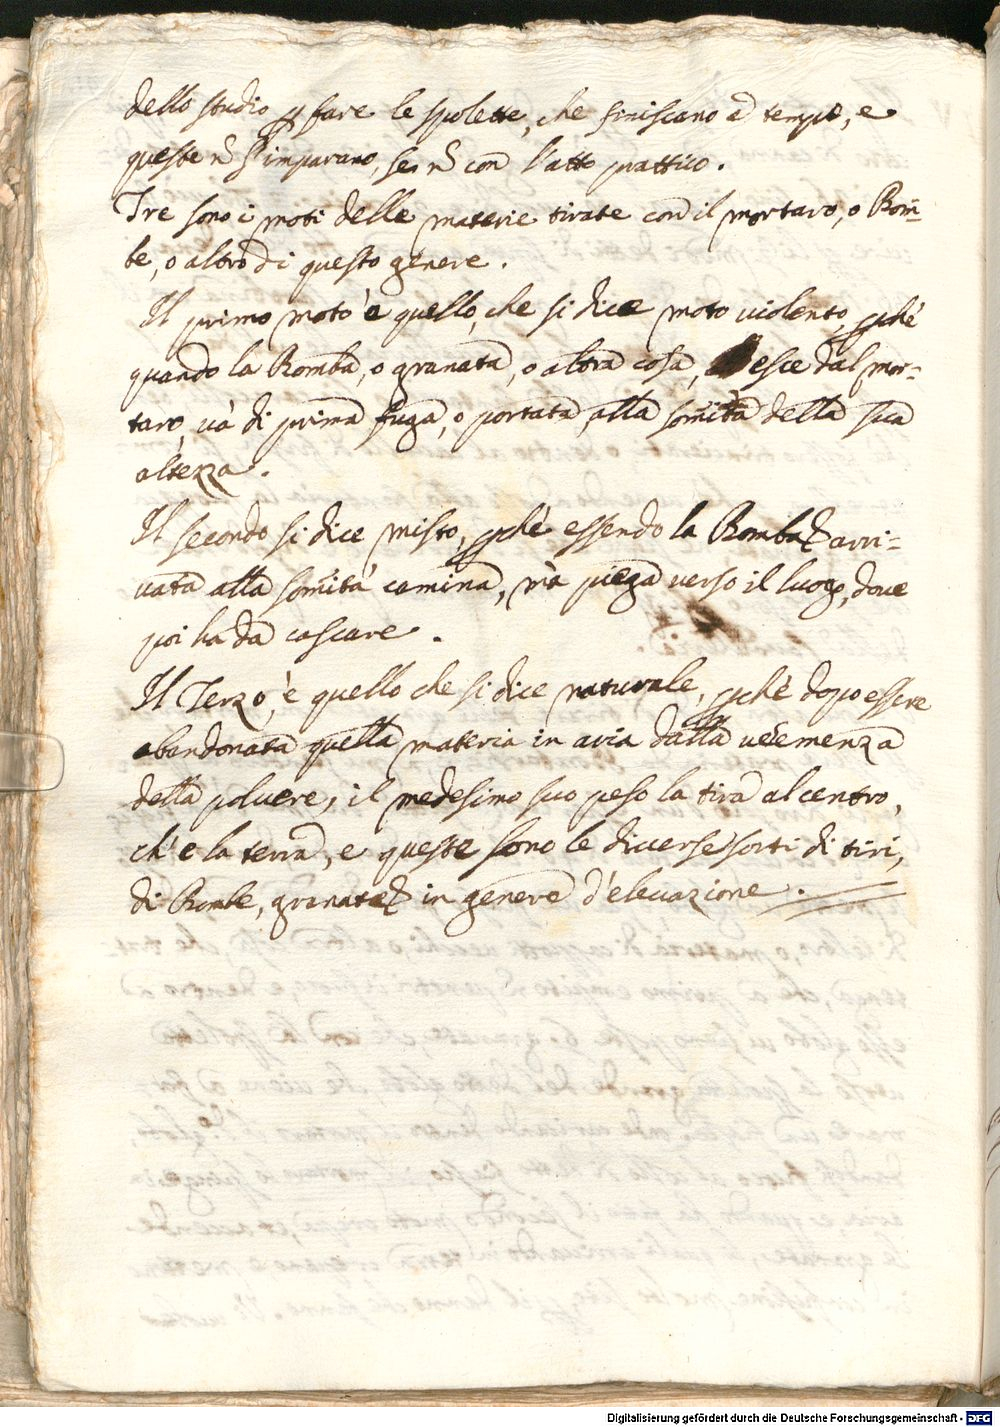 dello studio p fare le spolette, che finiscano a tempo, e
queste nõ s'imparano, se nõ con l'atto prattico.
Tre sono i moti delle materie tirate con il mortaro, o Bom=
be, o altro di questo genere.
Il primo moto è quello, che si dice moto violento, pche
quando la Bomba, o granata, o altra cosa, esce dal mor=
taro, và di prima fuga, o portata, alla somità della sua
altezza.
Il secondo si dice misto, pchè essendo la Bomba arri=
vata alla somità camina, mà piega verso il luogo, dove
poi ha da cascare.
Il Terzo, è quello che si dice naturale, pchè dopo essere
abandonata quella materia in aria dalla veemenza
della polvere, il medesimo suo peso la tira al centro,
ch'è la terra, e queste sono le diverse sorti di tiri,
di Bombe, granate in genere d'elevazione.
Digitalisierung gefördert durch die Deutsche Forschungsgemeinschaft - DFG